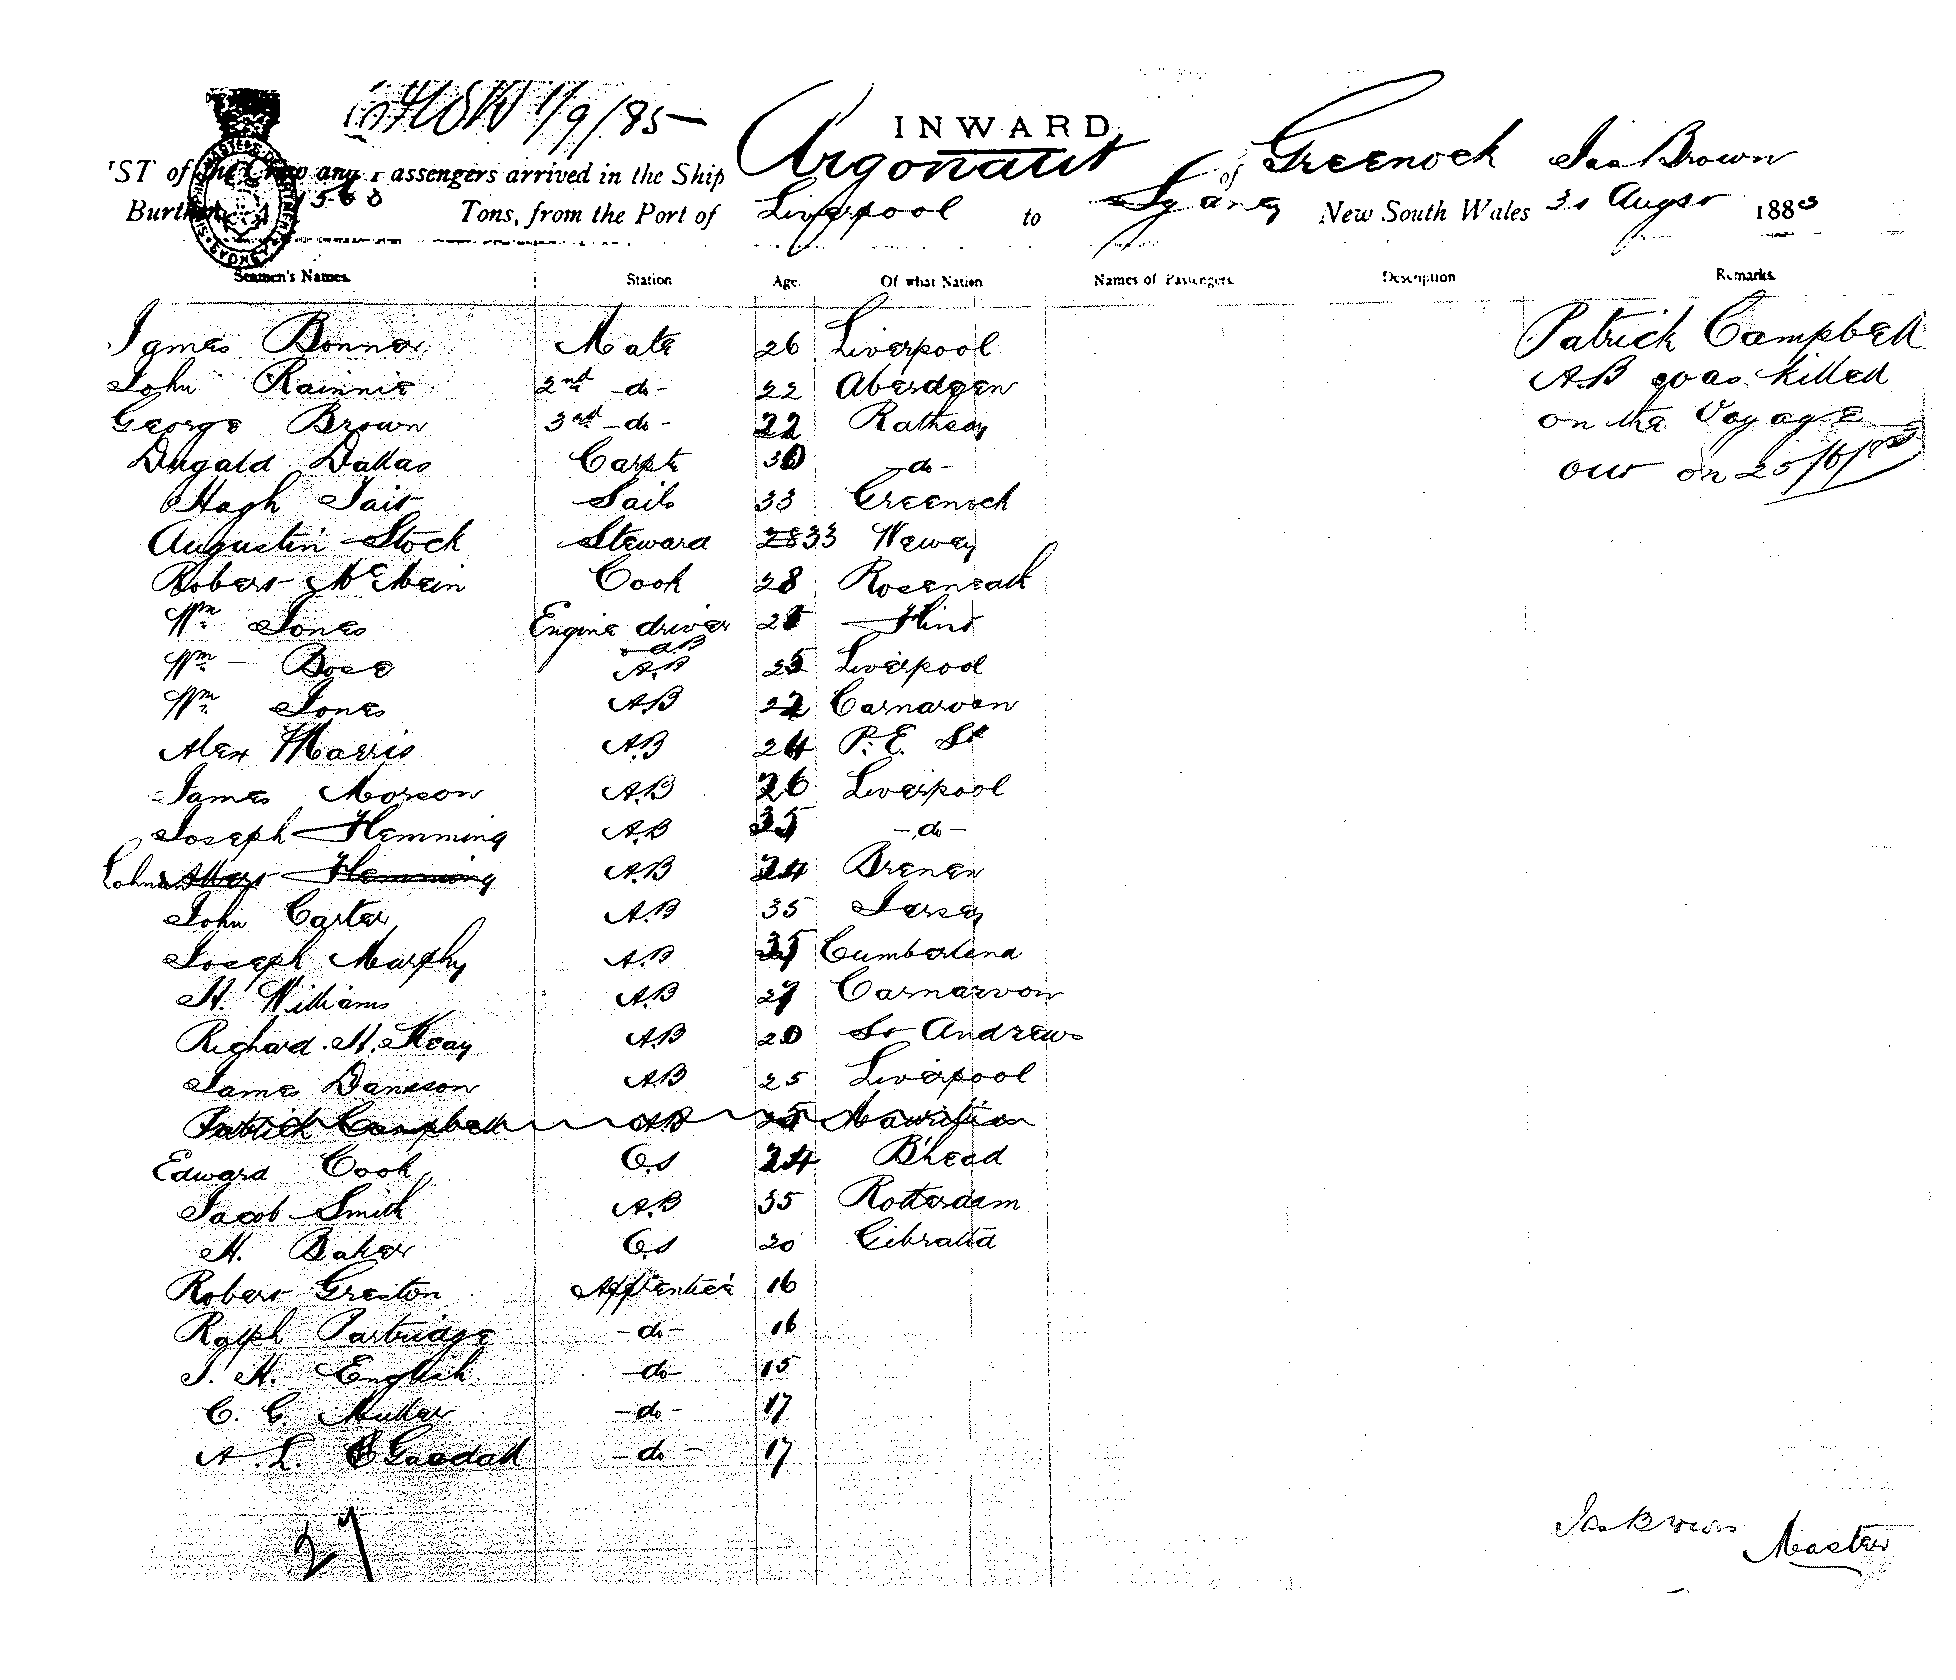 1/9/85
INWARD
LIST of the Crew and Passengers arrived in the Ship Argonaut of Greenock Jas Brown
Burthen 1568 Tons, from the Port of Liverpool to Sydney New South Wales 30 Augst 188
Seamen's Names. Station Age. Of what Nation Names of Passengers. Description Remarks.
James Bonner Mate 26 Liverpool Patrick Campbell
John Rainnie 2nd -do- 22 Aberdeen AB was killed
George Brown 3rd -do- 22 Rathesy on the Voyage
Dugald Dallas Carptr 30 -do- out on 25/6/85
Hugh Tait Sails 33 Greenock
Augustin Stock Steward 28 33
Robert McMein Cook 28 Roseneath
Wm Jones Engine driver & AB Flint
Wm Bose AB 25 Liverpool
Wm Jones AB 22 Carnarvon
Alex Harris AB 24 P. E. Sd
James Morson AB 26 Liverpool
Joseph Hemming AB 35 -do-
Hemming AB 24 Bremen
John Carter AB 35 Jersey
Joseph Murphy AB 35 Cumberland
H. Williams AB 27 Carnarvon
Richard. H. Keay AB 20 St Andrews
James Dansson AB 25 Liverpool
Patrick Campbell AB 25 Mauritius
Edward Cook O.S 24 B'head
Jacob Smith AB 35 Rotterdam
H. Baker O.S 20 Gibralta
Robert Greston Apprentice 16
Ralph Partridge -do- 16
J. H. English -do- 15
C. G. Muller -do- 17
A. L. Goodall -do- 17
27
Jas Brown Master